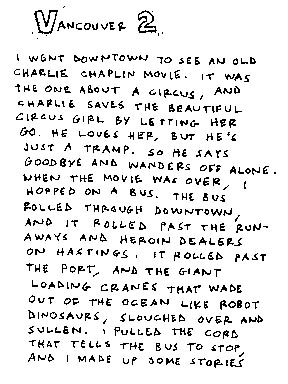 VANCOUVER 2
I WENT DOWNTOWN TO SEE AN OLD
CHARLIE CHAPLIN MOVIE. IT WAS
THE ONE ABOUT A CIRCUS, AND
CHARLIE SAVES THE BEAUTIFUL
CIRCUS GIRL BY LETTING HER
GO. HE LOVES HER, BUT HE'S
JUST A TRAMP. SO HE SAYS
GOODBYE AND WANDERS OFF ALONE.
WHEN THE MOVIE WAS OVER, I
HOPPED ON A BUS. THE BUS
ROLLED THROUGH DOWNTOWN,
AND IT ROLLED PAST THE RUN-
AWAYS AND HEROIN DEALERS
ON HASTINGS. IT ROLLED PAST
THE PORT, AND THE GIANT
LOADING CRANES THAT WADE
OUT OF THE OCEAN LIKE ROBOT
DINOSAURS, SLOUCHED OVER AND
SULLEN. I PULLED THE CORD
THAT TELLS THE BUS TO STOP,
AND I MADE UP SOME STORIES